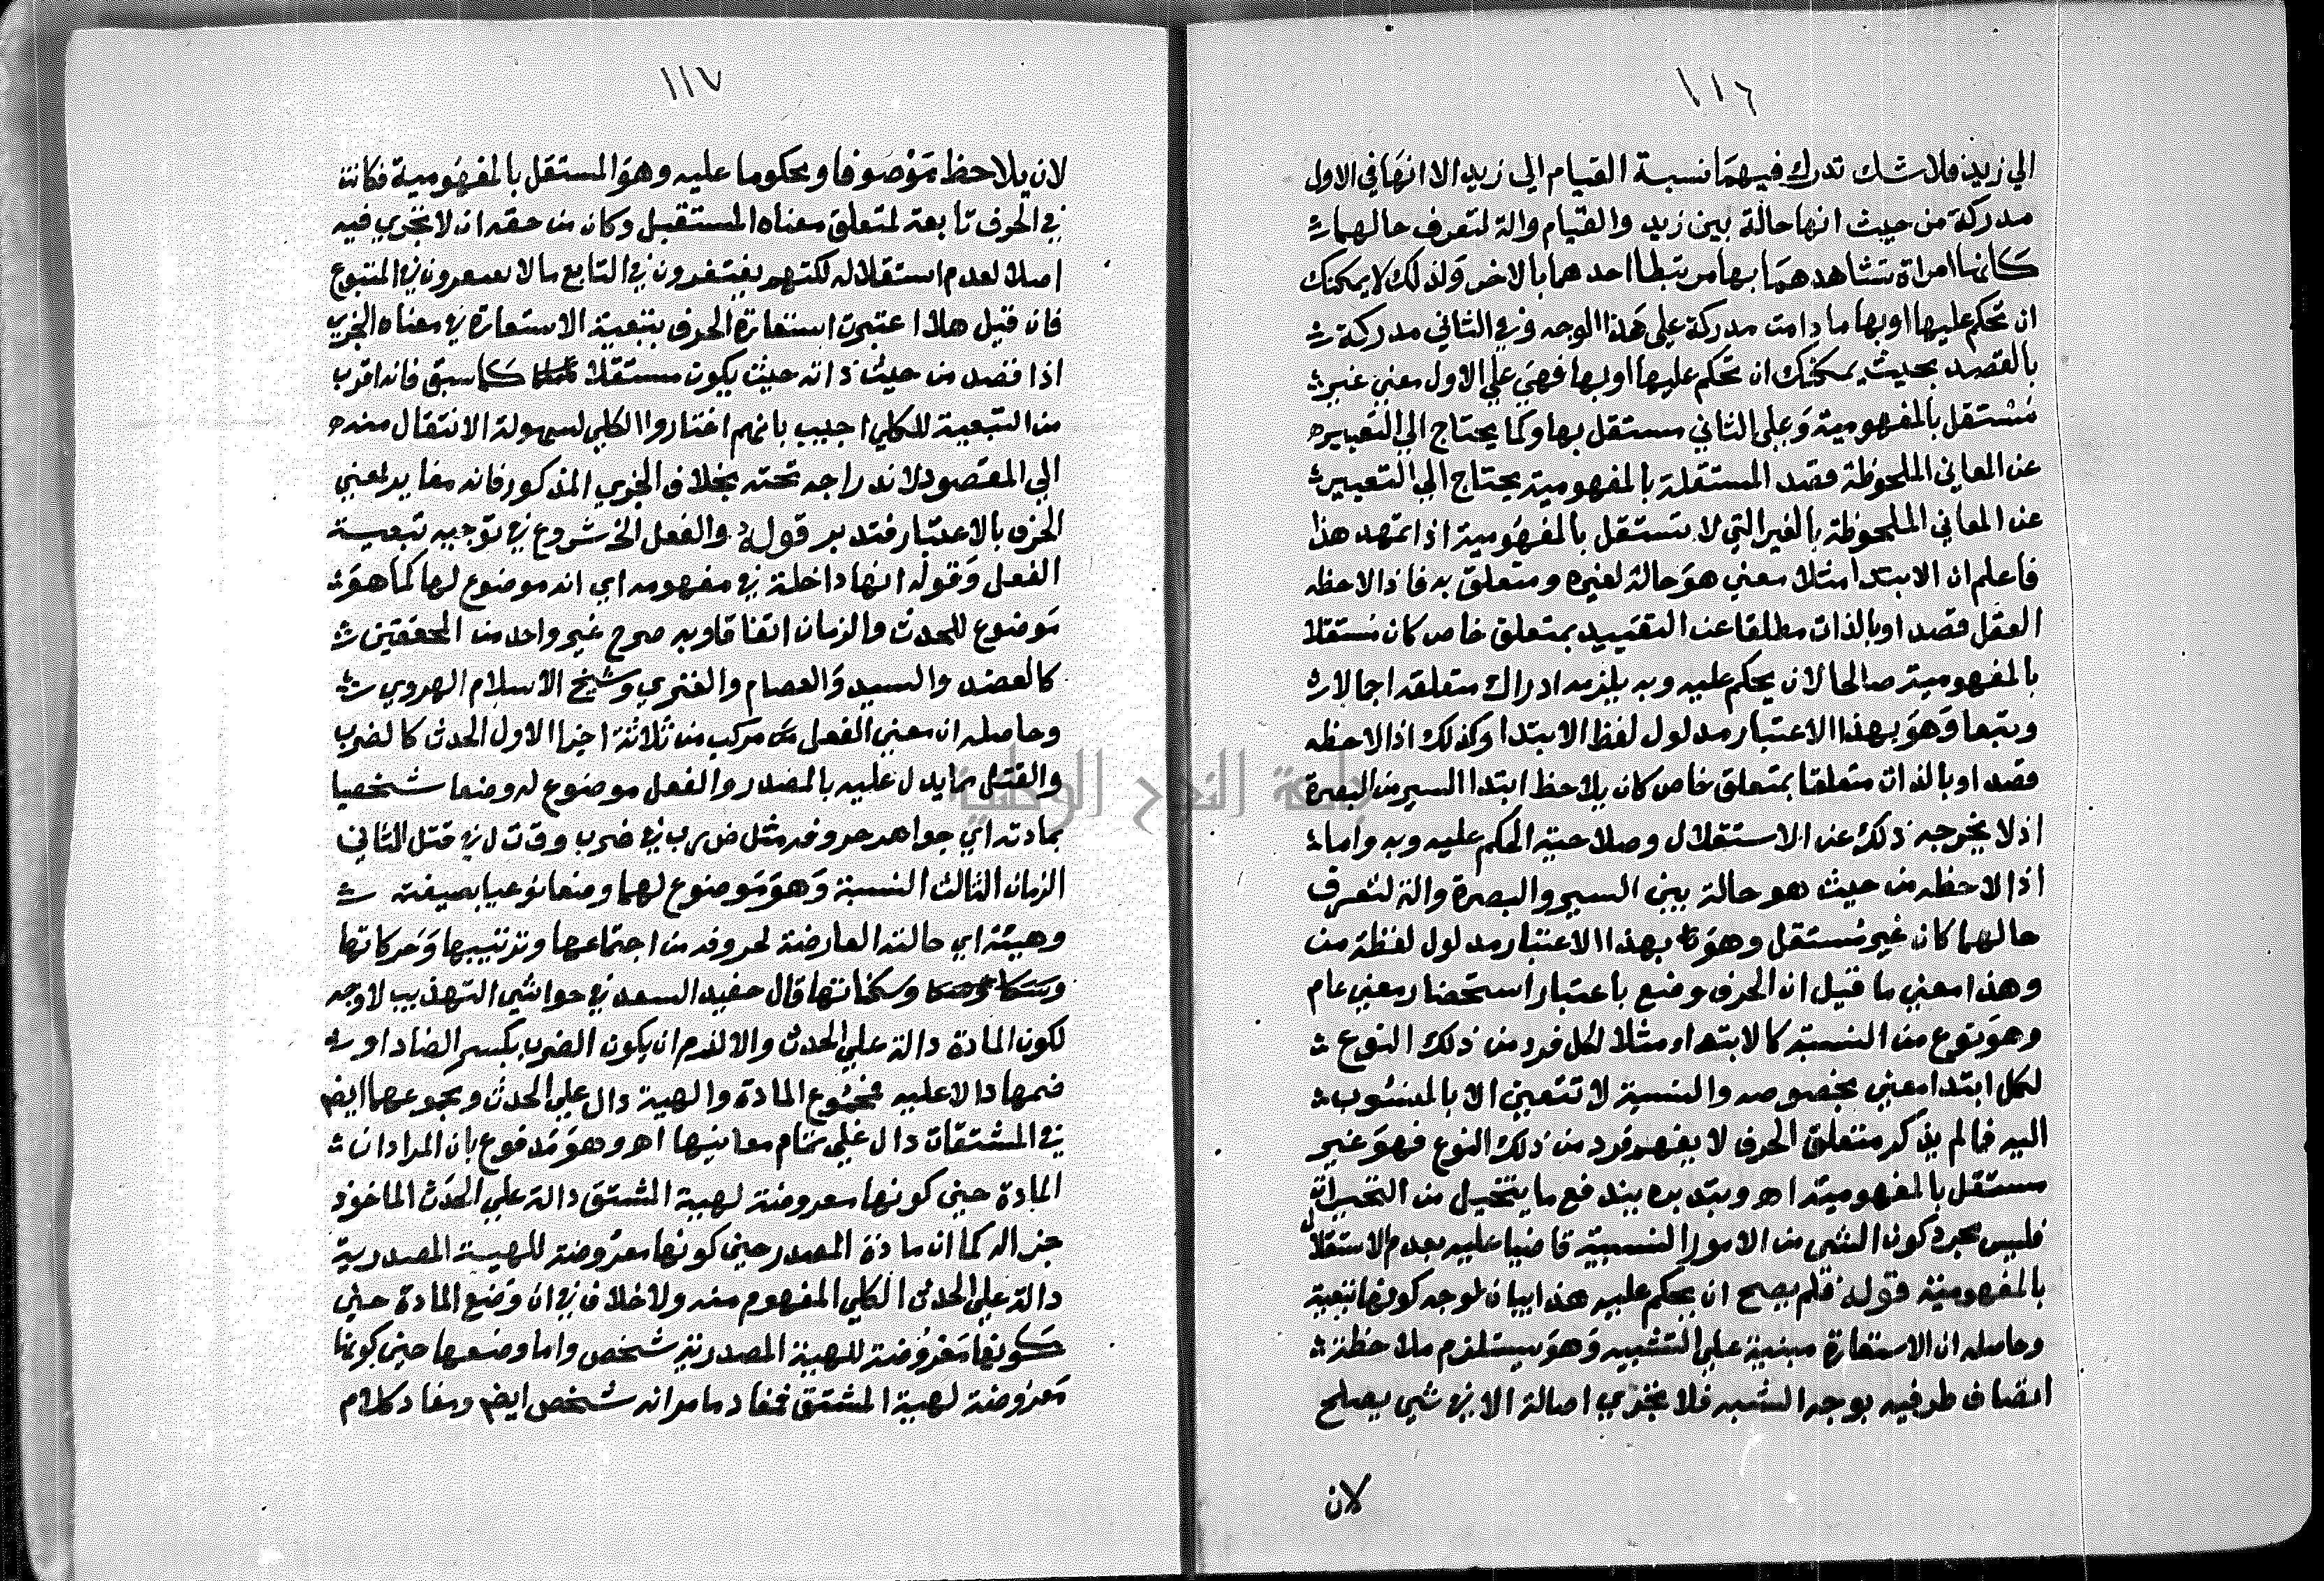 ١١٦
الي زيد فلا شك تدرك فيهما نسبة القيام الي زيد الا انها في الاول
مدركة من حيث انها حالة بين زيد والقيام والة لتعرف حالهما
كانها امراة تشاهدهما بها مرتبطا احدهما بالاخر ولذلك لا يمكنك
ان تحكم عليها اوبها ما دامت مدركة علي هذا الوجه وفي الثاني مدركة
بالقصد بحيث يمكنك ان تحكم عليها اوبها فهي علي الاول معني غير
مستقل بالمفهومية وعلي الثاني مستقل بها وكما يحتاج الي التعبير
عن المعاني الملحوظة قصد المستقلة بالمفهومية يحتاج الي التعبير
عن المعاني الملحوظة بالغير التي لا تستقل بالمفهومية اذا تمهد هذا
فاعلم ان الابتدا مثلا معني هو حالة لغيره ومتعلق به فاذا لاحظه
العقل قصدا وبالذات مطلقا عن التقييد بمتعلق خاص كان مستقلا
بالمفهومية صالحا لان يحكم عليه وبه يلزمه ادراك متعلقه اجمالا
وتبعا وهو بهذا الاعتبار مدلول لفظ الابتدا وكذلك اذا لاحظه
قصدا وبالذات متعلقا بمتعلق خاص كان يلاحظ ابتدا السير من البصرة
اذ لا يخرجه ذلك عن الاستقلال وصلاحية الحكم عليه وبه واما
اذا لاحظه من حيث هو حالة بين السير والبصرة والة لتعرف
حالهما كان غير مستقل وهو بهذا الاعتبار مدلول لفظة من
وهذا معني ما قيل ان الحرف وضع باعتبار استحضار معني عام
وهو نوع من النسبة كالابتداء مثلا لكل فرد من ذلك النوع
لكل ابتدا معني بخصوصه والنسبة لا تتعين الا بالمنسوب
اليه فما لم يذكر متعلق الحرف لا يفهم فرد من ذلك النوع فهو غير
مستقل بالمفهومية اه وبتدبره يندفع ما يتخيل من
فليس مجرد كون الشي من الامور النسبية قاضيا عليه بعدم الاستقلال
بالمفهومية قوله فلم يصح ان يحكم عليه هذا بيان لوجه كونها تبعية
وحاصله ان الاستعارة مبنية علي التشبيه وهو يستلزم ملاحظة
اتصاف طرفيه بوجه الشبه فلا تجري اصالة الا في شي يصلح
لان
١١٧
لان يلاحظ موصوفا ومحكوما عليه وهو المستقل بالمفهومية فكانت
في الحرف تابعة لمتعلق معناه المستقبل وكان من حقه ان لا تجري فيه
اصلا لعدم استقلاله لكنهم يغتفرون في التابع ما لا يغتفرون في المتبوع
فان قيل هلا اعتبرت استعارة الحرف بتبعية الاستعارة في معناه الجزي
اذا قصد من حيث ذاته حيث يكون مستقلا كما سبق فانه اقرب
من التبعية للكلي اجيب بانهم اختاروا الكلي لسهولة الانتقال منه
الي المقصود لاندراجه تحته بخلاف الجزي المذكور فانه مغاير لمعني
الحرف بالاعتبار فتدبر قوله والفعل الخ شروع في توجيه تبعية
الفعل وقوله انها داخلة في مفهومه اي انه موضوع لها كما هو
موضوع للحدث والزمان اتفاقا وبه صرح غير واحد من المحققين
كالعضد والسيد والعصام والفنري وشيخ الاسلام الهروي
وحاصله ان معني الفعل مركب من ثلاثة اجزا الاول الحدث كالضرب
والقتل مما يدل عليه بالمصدر والفعل موضوع له وضعا شخصيا
بمادته اي جواهر حروفه مثل ض ر ب في ضرب وق ت ل في قتل الثاني
الزمان الثالث النسبة وهو موضوع لهما وضعا نوعيا بصيغته
وهيئته اي حالته العارضة لحروفه من اجتماعها وترتيبها وحركاتها
وسكناتها قال حفيد السعد في حواشي التهذيب لا وجه
لكون المادة دالة علي الحدث والا لزم ان يكون الضرب بكسر الضاد او
ضمها دالا عليه فمجموع المادة والهية دال علي الحدث ومجموعهما ايض
في المشتقات دال علي تمام معانيها اه وهو مدفوع بان المراد ان
المادة حين كونها معروضة لهيية المشتق دالة علي الحدث الماخوذ
جزا له كما ان مادة المصدر حين كونها معروضة للهيية المصدرية
دالة علي الحدث الكلي المفهوم منه ولا خلاف في ان وضع المادة حين
كونها معروضة للهيية المصدرية شخص واما وضعها حين كونها
معروضة لهيية المشتق فمفاد ما مر انه شخص ايض ومفاد كلام
جامعة النجاح الوطنية